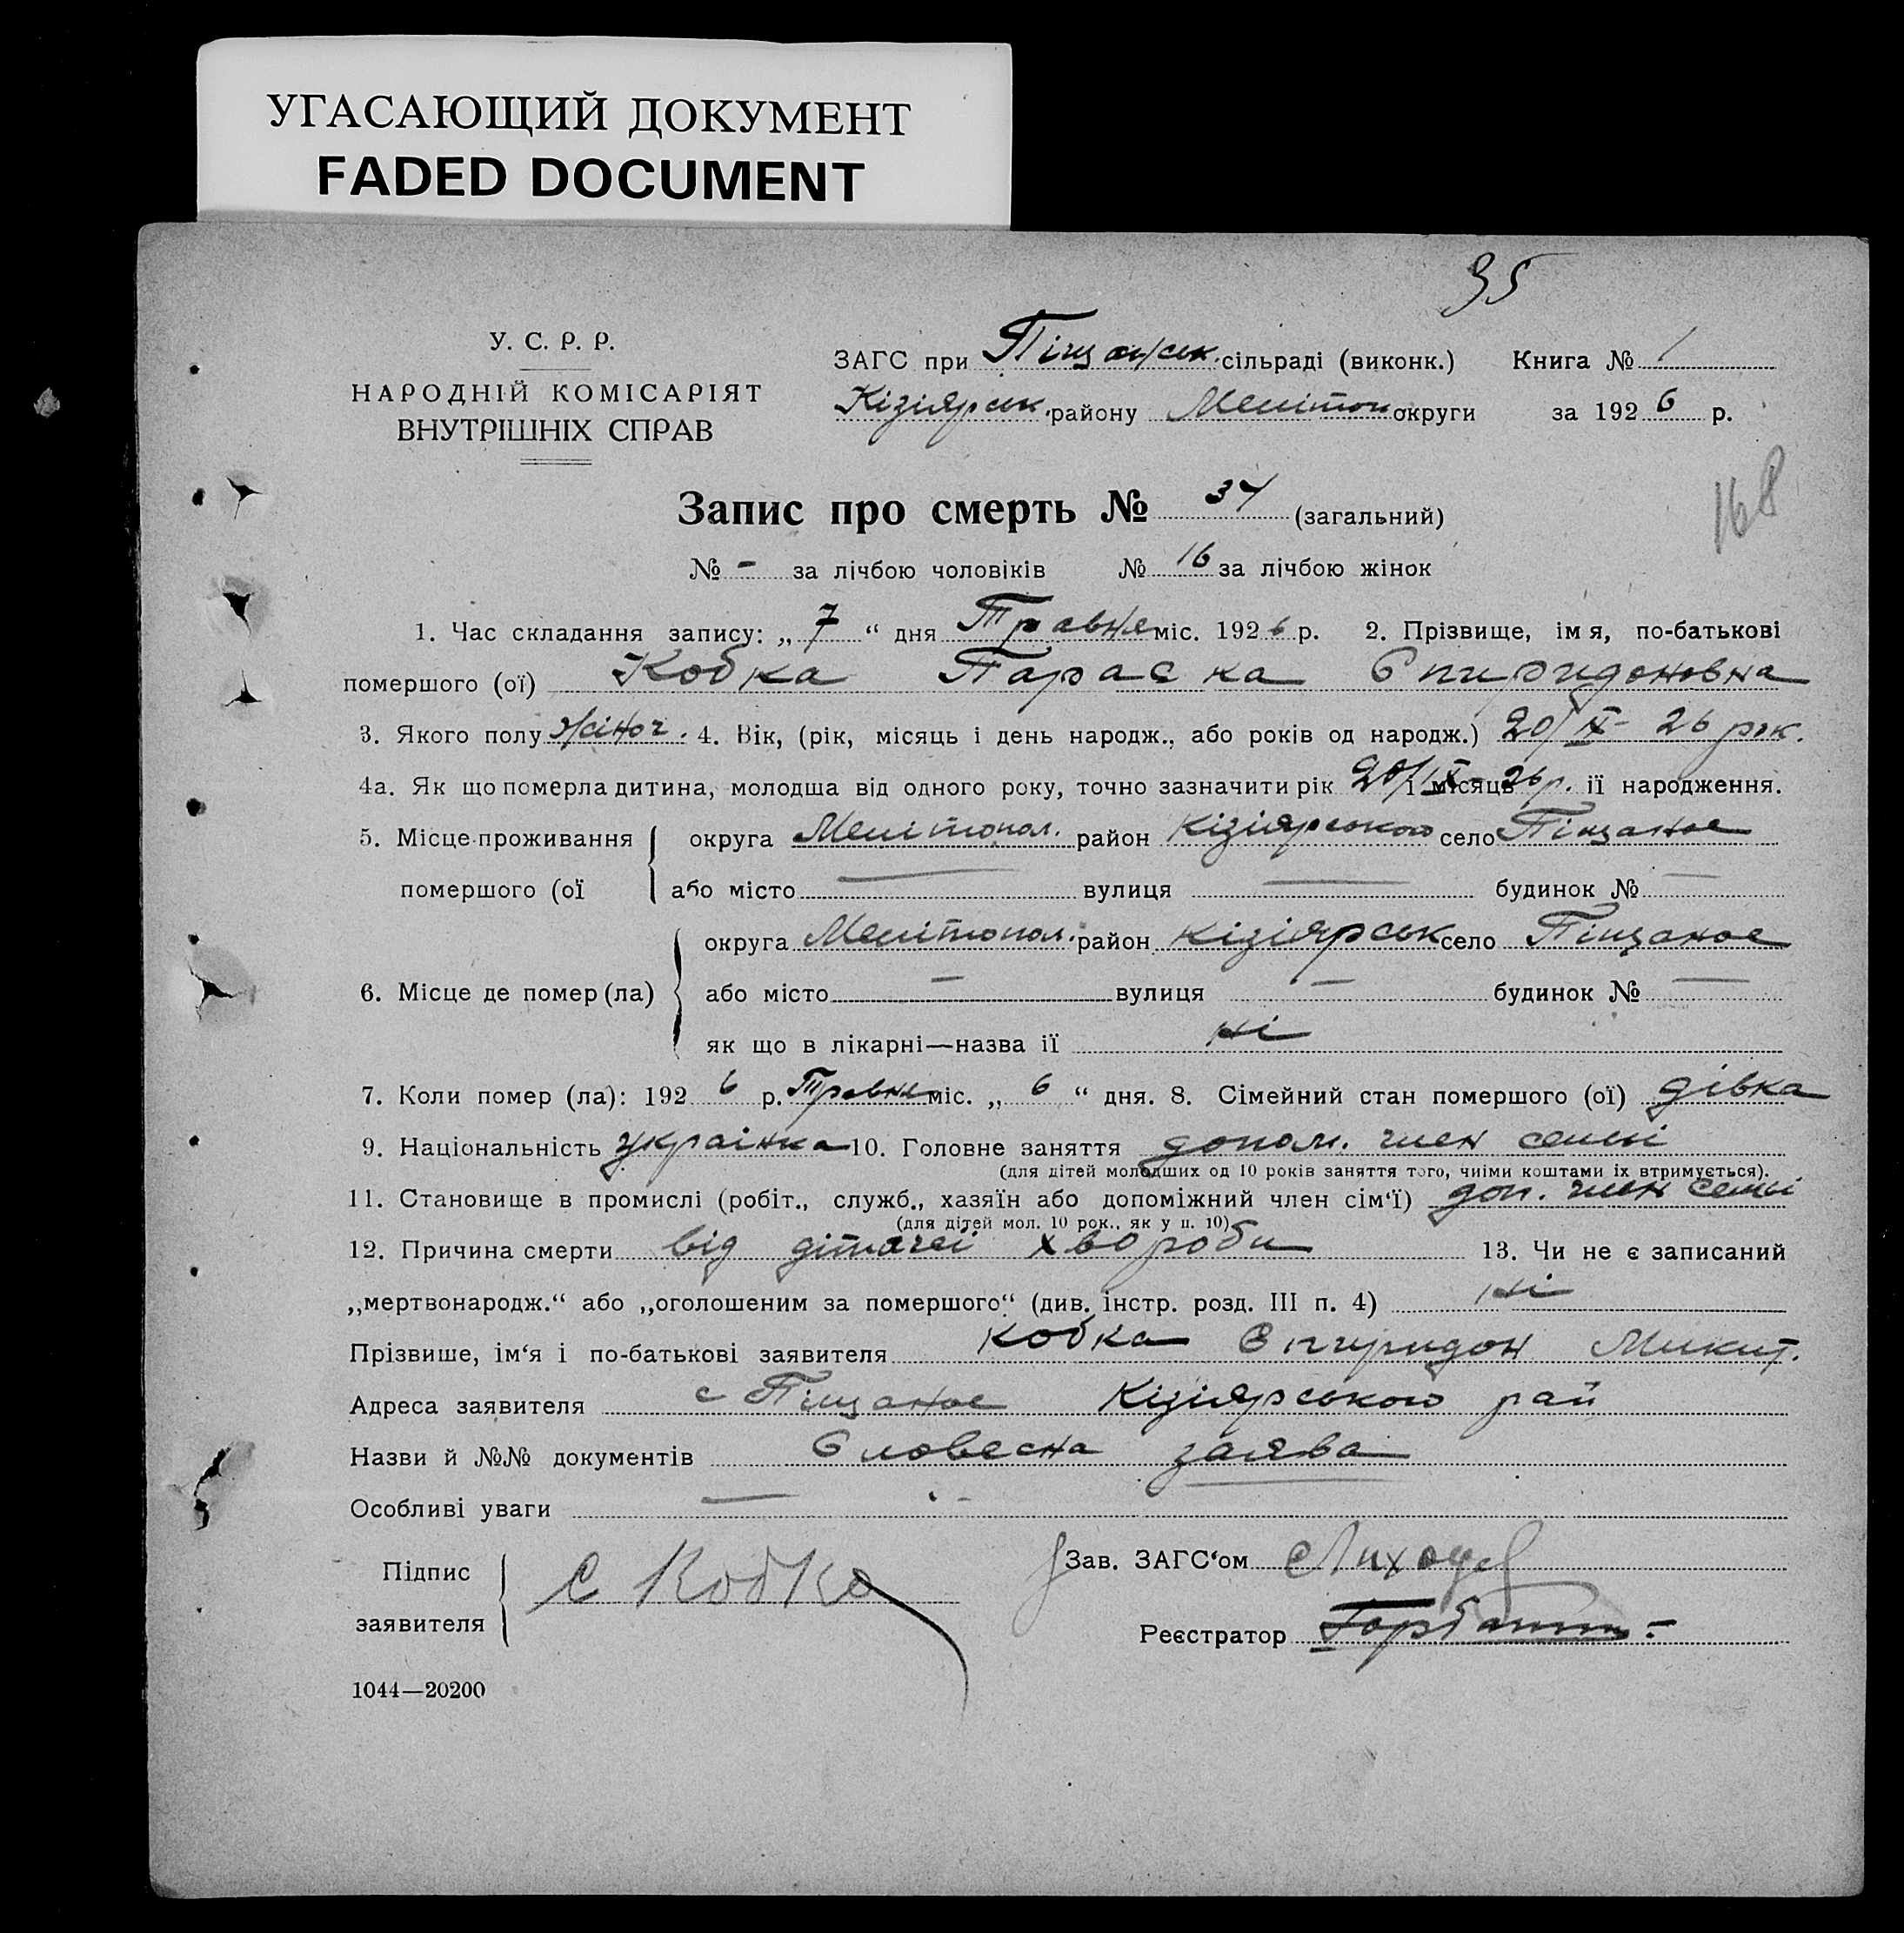 УГАСАЮЩИЙ ДОКУМЕНТ
FADED DOCUMENT
35
У. С. Р. Р.
НАРОДНІЙ КОМІСАРІЯТ
ВНУТРІШНІХ СПРАВ
ЗАГС при Піщанськ. сільраді (виконк.) Книга № 1
Кізіярськ. району Мелітоп округи за 1926 р.
168
Запис про смерть № 34 (загальний)
№ - за лічбою чоловіків № 16 за лічбою жінок
1. Час складання запису: „ 7 “ дня Травня міс. 1926 р. 2. Прізвище, імя, по-батькові
помершого (ої) Кобка Параска Спиридоновна
3. Якого полу жіноч. 4. Вік, (рік, місяць і день народж., або років од народж.) 20/IX- 26 рок.
4а. Як що померла дитина, молодша від одного року, точно зазначити рік 20/IX- 26 р. і місяць ії народження.
5. Місце проживання округа Мелітопол. район Кізіярського село Піщаное
помершого (ої або місто — вулиця — будинок № —
округа Мелітопол. район Кізіярськ село Піщаное
6. Місце де помер (ла) або місто — вулиця — будинок № —
як що в лікарні—назва ії ні
7. Коли помер (ла): 1926 р. Травня міс. „ 6 “ дня. 8. Сімейний стан помершого (ої) дівка
9. Національність украінка 10. Головне заняття допом. член семьі
(для дітей молодших од 10 років заняття того, чиїми коштами їх втримується).
11. Становище в промислі (робіт., служб., хазяїн або допоміжний член сім‘ї) доп. член семьі
(для дітей мол. 10 рок., як у п. 10)
12. Причина смерти від дітячеі хвороби 13. Чи не є записаний
„мертвонародж.“ або „оголошеним за помершого“ (див. інстр. розд. III п. 4) ні
Прізвише, ім‘я і по-батькові заявителя Кобка Спиридон Микит.
Адреса заявителя с Піщаное Кізіярського рай
Назви й №№ документів Словесна заява
Особливі уваги —
Підпис
заявителя С Кобка
Зав. ЗАГС‘ом
Реєстратор
1044—20200